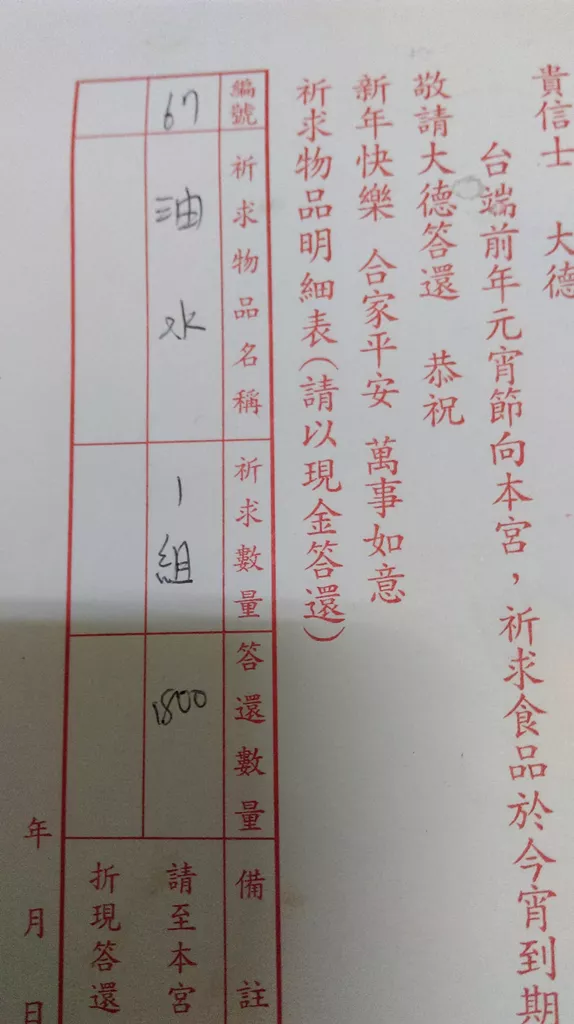 貴信士 大德
台端前年元宵節向本宮，祈求食品於今宵到期
敬請大德答還 恭祝
新年快樂 合家平安 萬事如意
祈求物品明細表（請以現金答還）
編號 祈求物品名稱 祈求數量 答還數量 備註
67 油水 1組 1800 請至本宮
折現答還
年 月 日